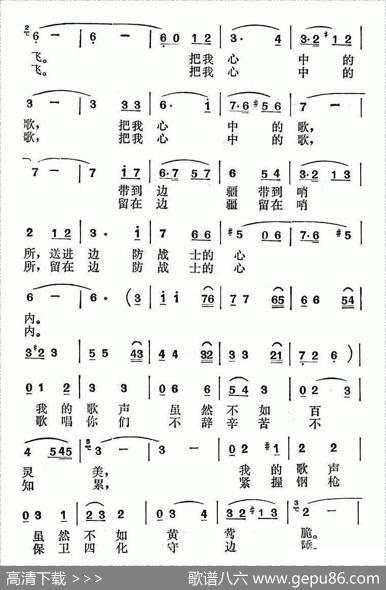 6 - | 6 - | 6 0 1 2 | 3· 4 | 3·2 #1 2 |
飞。 把我 心 中 的
飞。 把我 心 中 的
3 - | 3 3 3 | 6· i | 7·6 #5 6 | 7 - |
歌, 把我 心 中 的 歌,
歌, 把我 心 中 的 歌,
7 - | 7 i 7 | 6·7 5 7 | 6 5 4 | 3·2 1 3 |
带到 边 疆 带到 哨
留在 边 疆 留在 哨
2 1 2 | 3· 4 | 7 6 6 | #5 0 6 | 7·6 #5 |
所, 送进 边 防 战士 的 心
所, 留在 边 防 战士 的 心
6 - | 6· (3 | i i 76 | 7 7 65 | 6 6 54 |
内。
内。
3#2 3 | 5 5 43 | 4 4 32 | 3 3 21 | 7 2 6) |
0 1 2 | 3 3 | 0 6 6 | 5 4 3 | 0 2 3 |
我 的 歌 声 虽 然 不 如 百
歌 唱 你 们 不 辞 辛 苦 不
4 5 4 5 | 3 - | 3 - | 0 2 #1 | 2 2 |
灵 美, 我 的 歌 声
知 累, 紧 握 钢 枪
0 3 1 | 2 3 2 | 0 3 6 | 3 2 #1 3 | 2 - |
虽 然 不 如 黄 莺 脆。
保 卫 四 化 守 边
高清下载 >>> 歌谱八六 www.gepu86.com